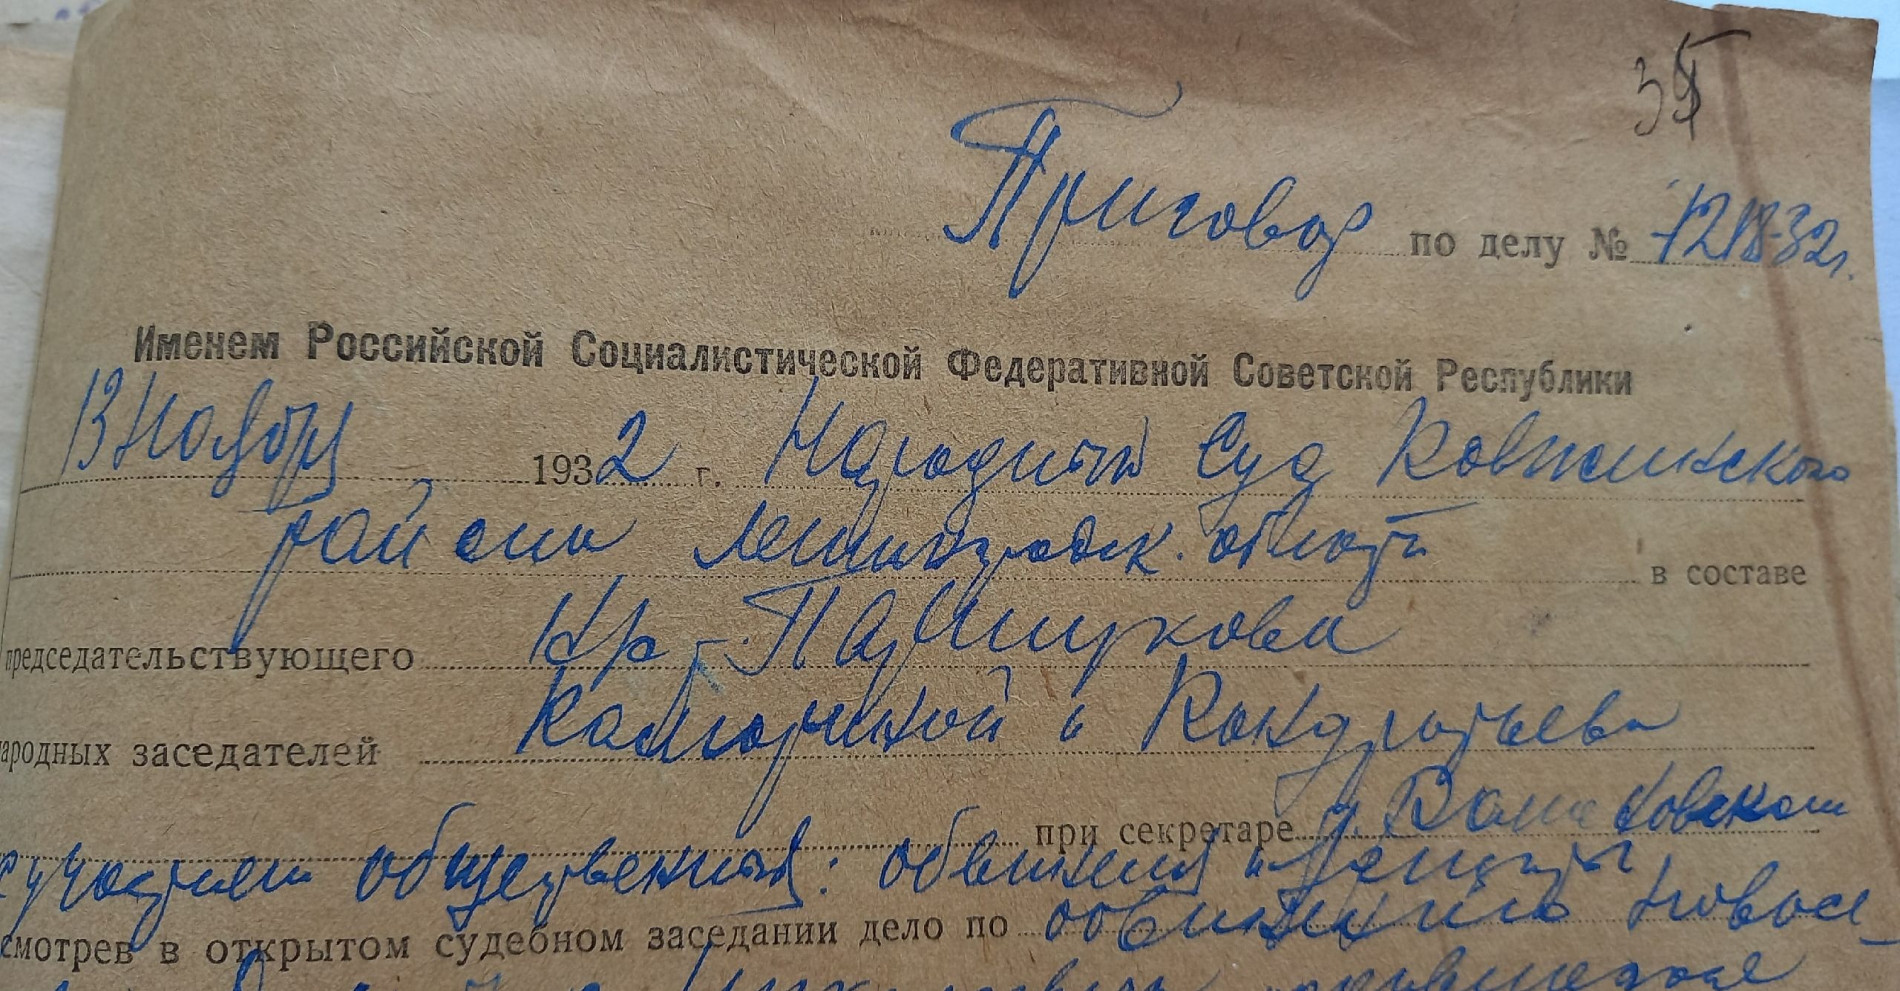 Приговор по делу № 1218-32г.
Именем Российской Социалистической Федеративной Советской Республики
13 Ноября 1932 г. Народный Суд Ковжинского
района Ленинградск. области в составе
председательствующего Кр-
ародных заседателей и Кондратьева
при секретаре
с участием общественных: обвинения и защиты
смотрев в открытом судебном заседании дело по обвинению